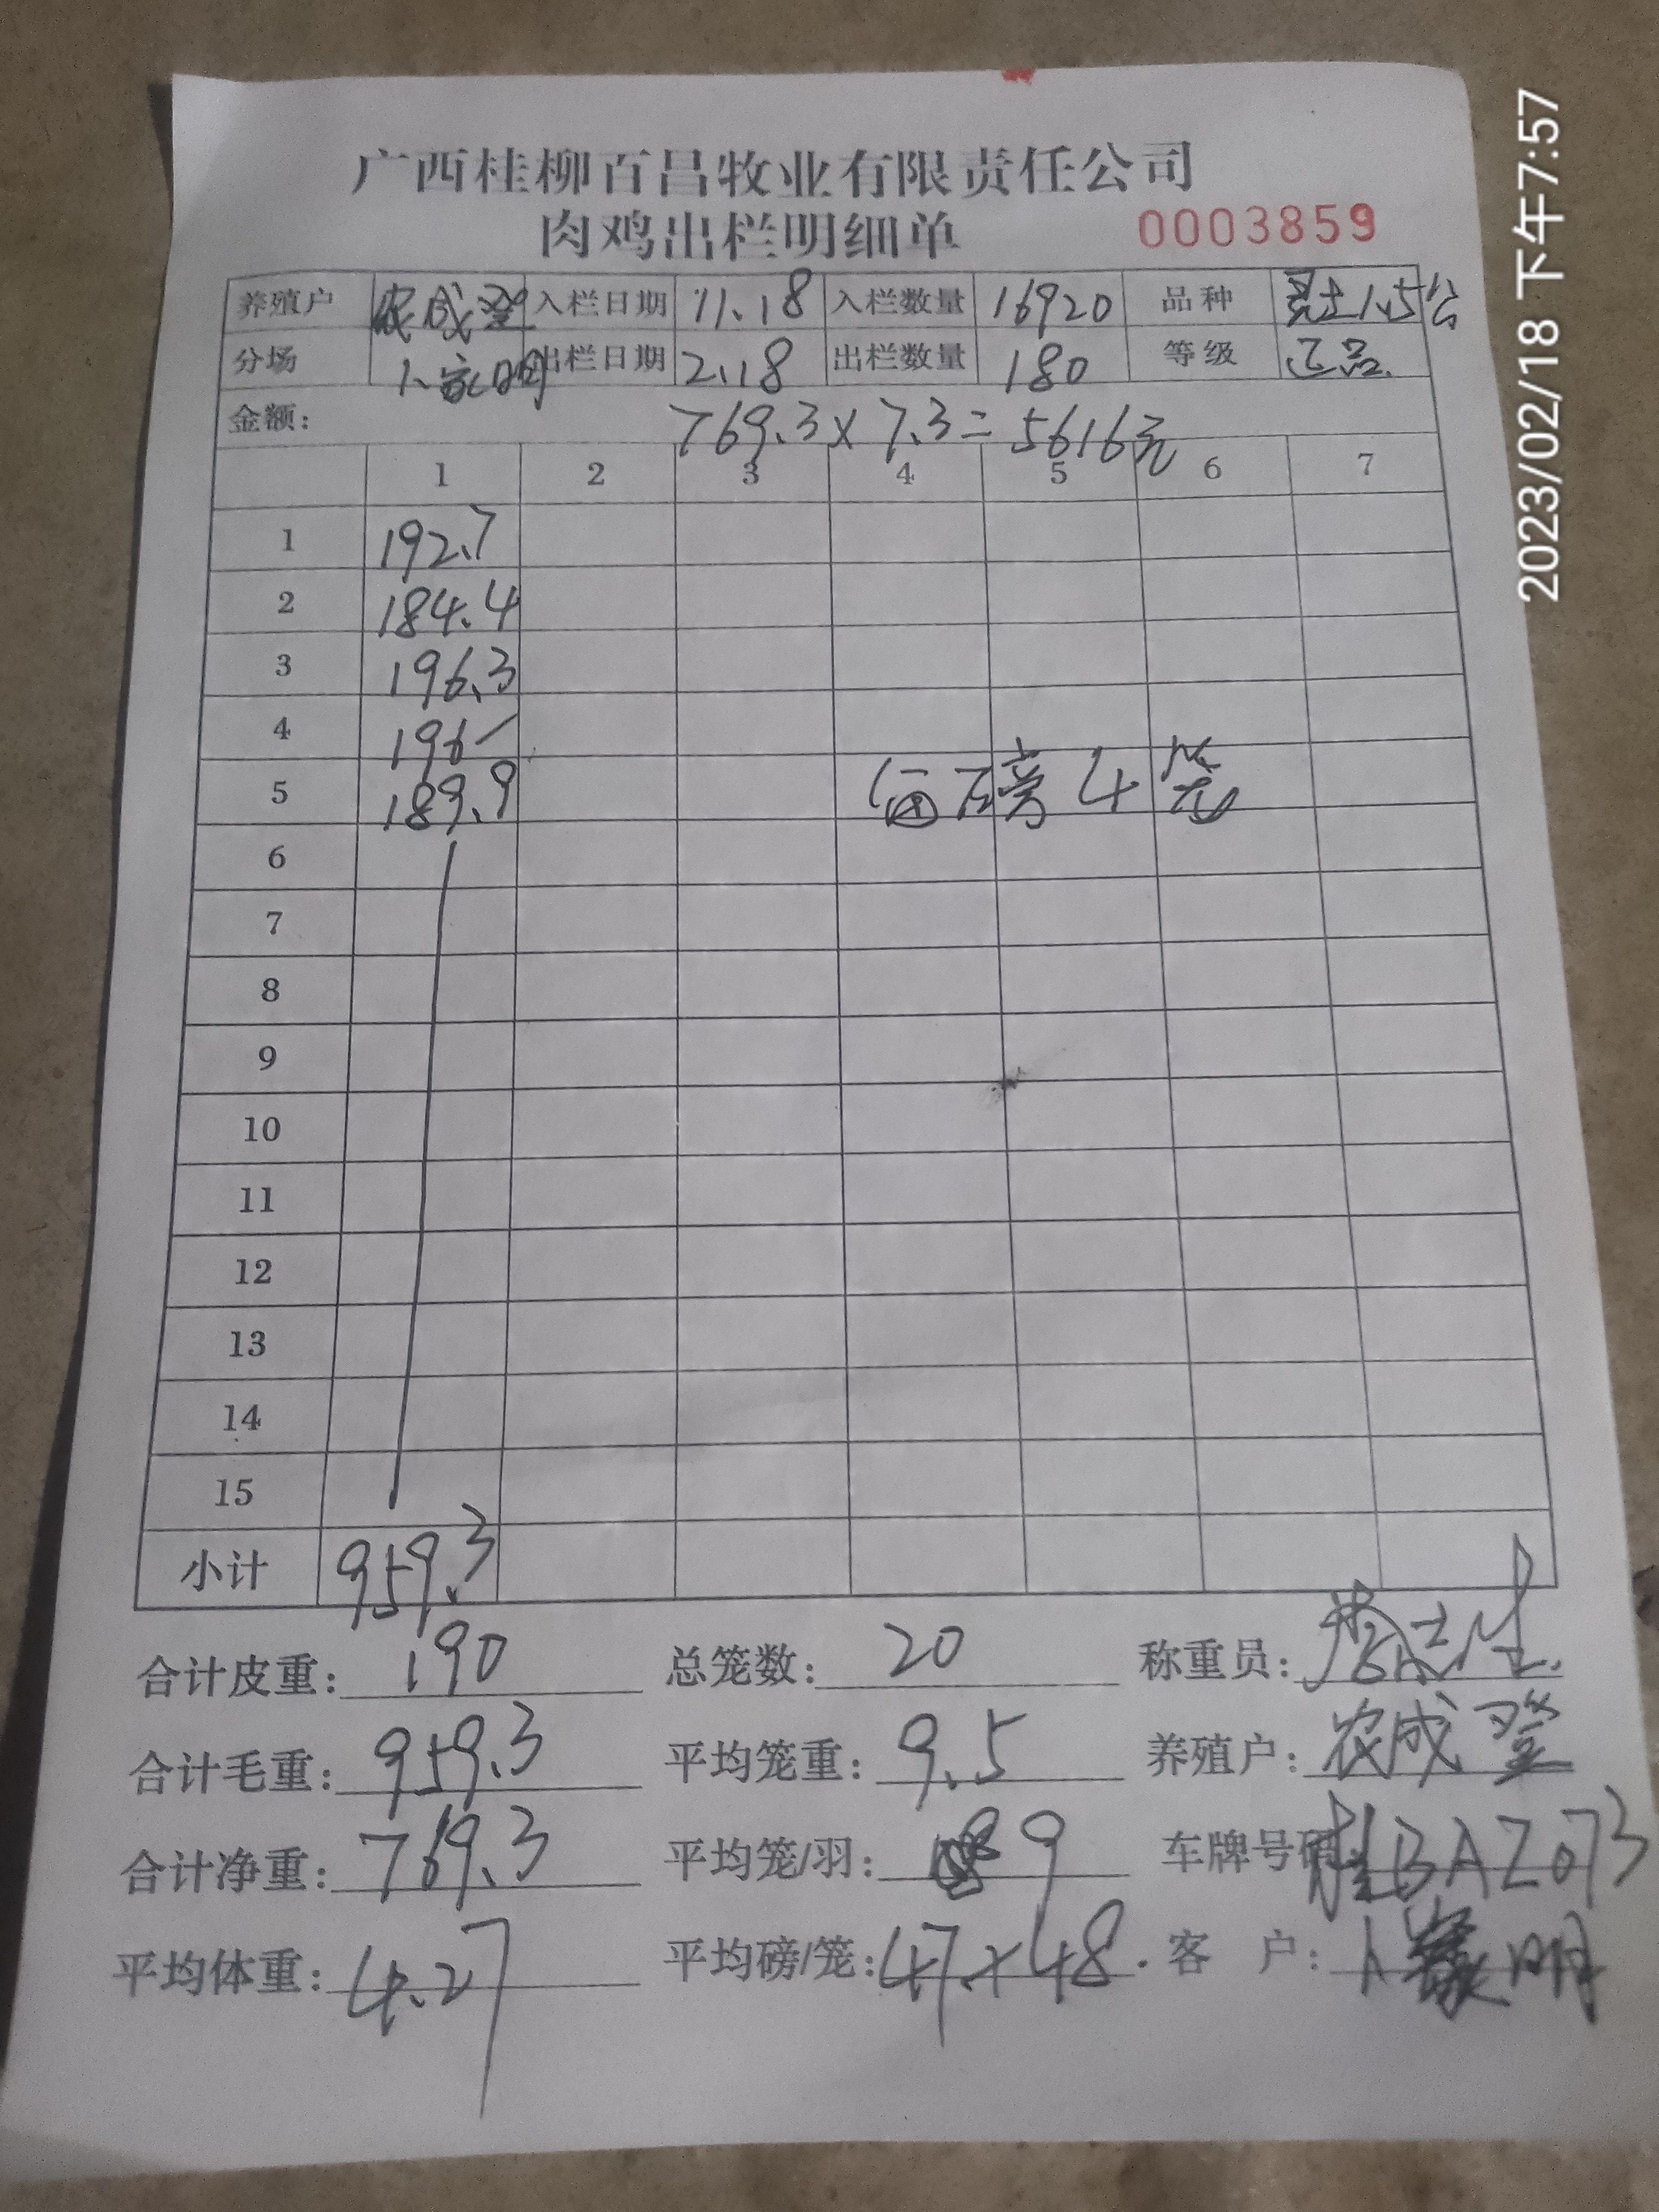 广西桂柳百昌牧业有限责任公司
肉鸡出栏明细单 0003859
养殖户 农成登 入栏日期 11.18 入栏数量 16920 品种 土1.5公
分场 卜家明 出栏日期 2.18 出栏数量 180 等级 正品
金额: 769.3×7.3=5616元
1 2 3 4 5 6 7
1 192.7
2 184.4
3 196.3
4 196-
5 189.9 每磅4笼
6
7
8
9
10
11
12
13
14
15
小计 959.3
合计皮重: 190 总笼数: 20 称重员:
合计毛重: 959.3 平均笼重: 9.5 养殖户: 农成登
合计净重: 769.3 平均笼/羽: 9 车牌号码: 桂BAZ073
平均体重: 4.27 平均磅/笼: 47.×48. 客 户: 卜家明
2023/02/18 下午7:57